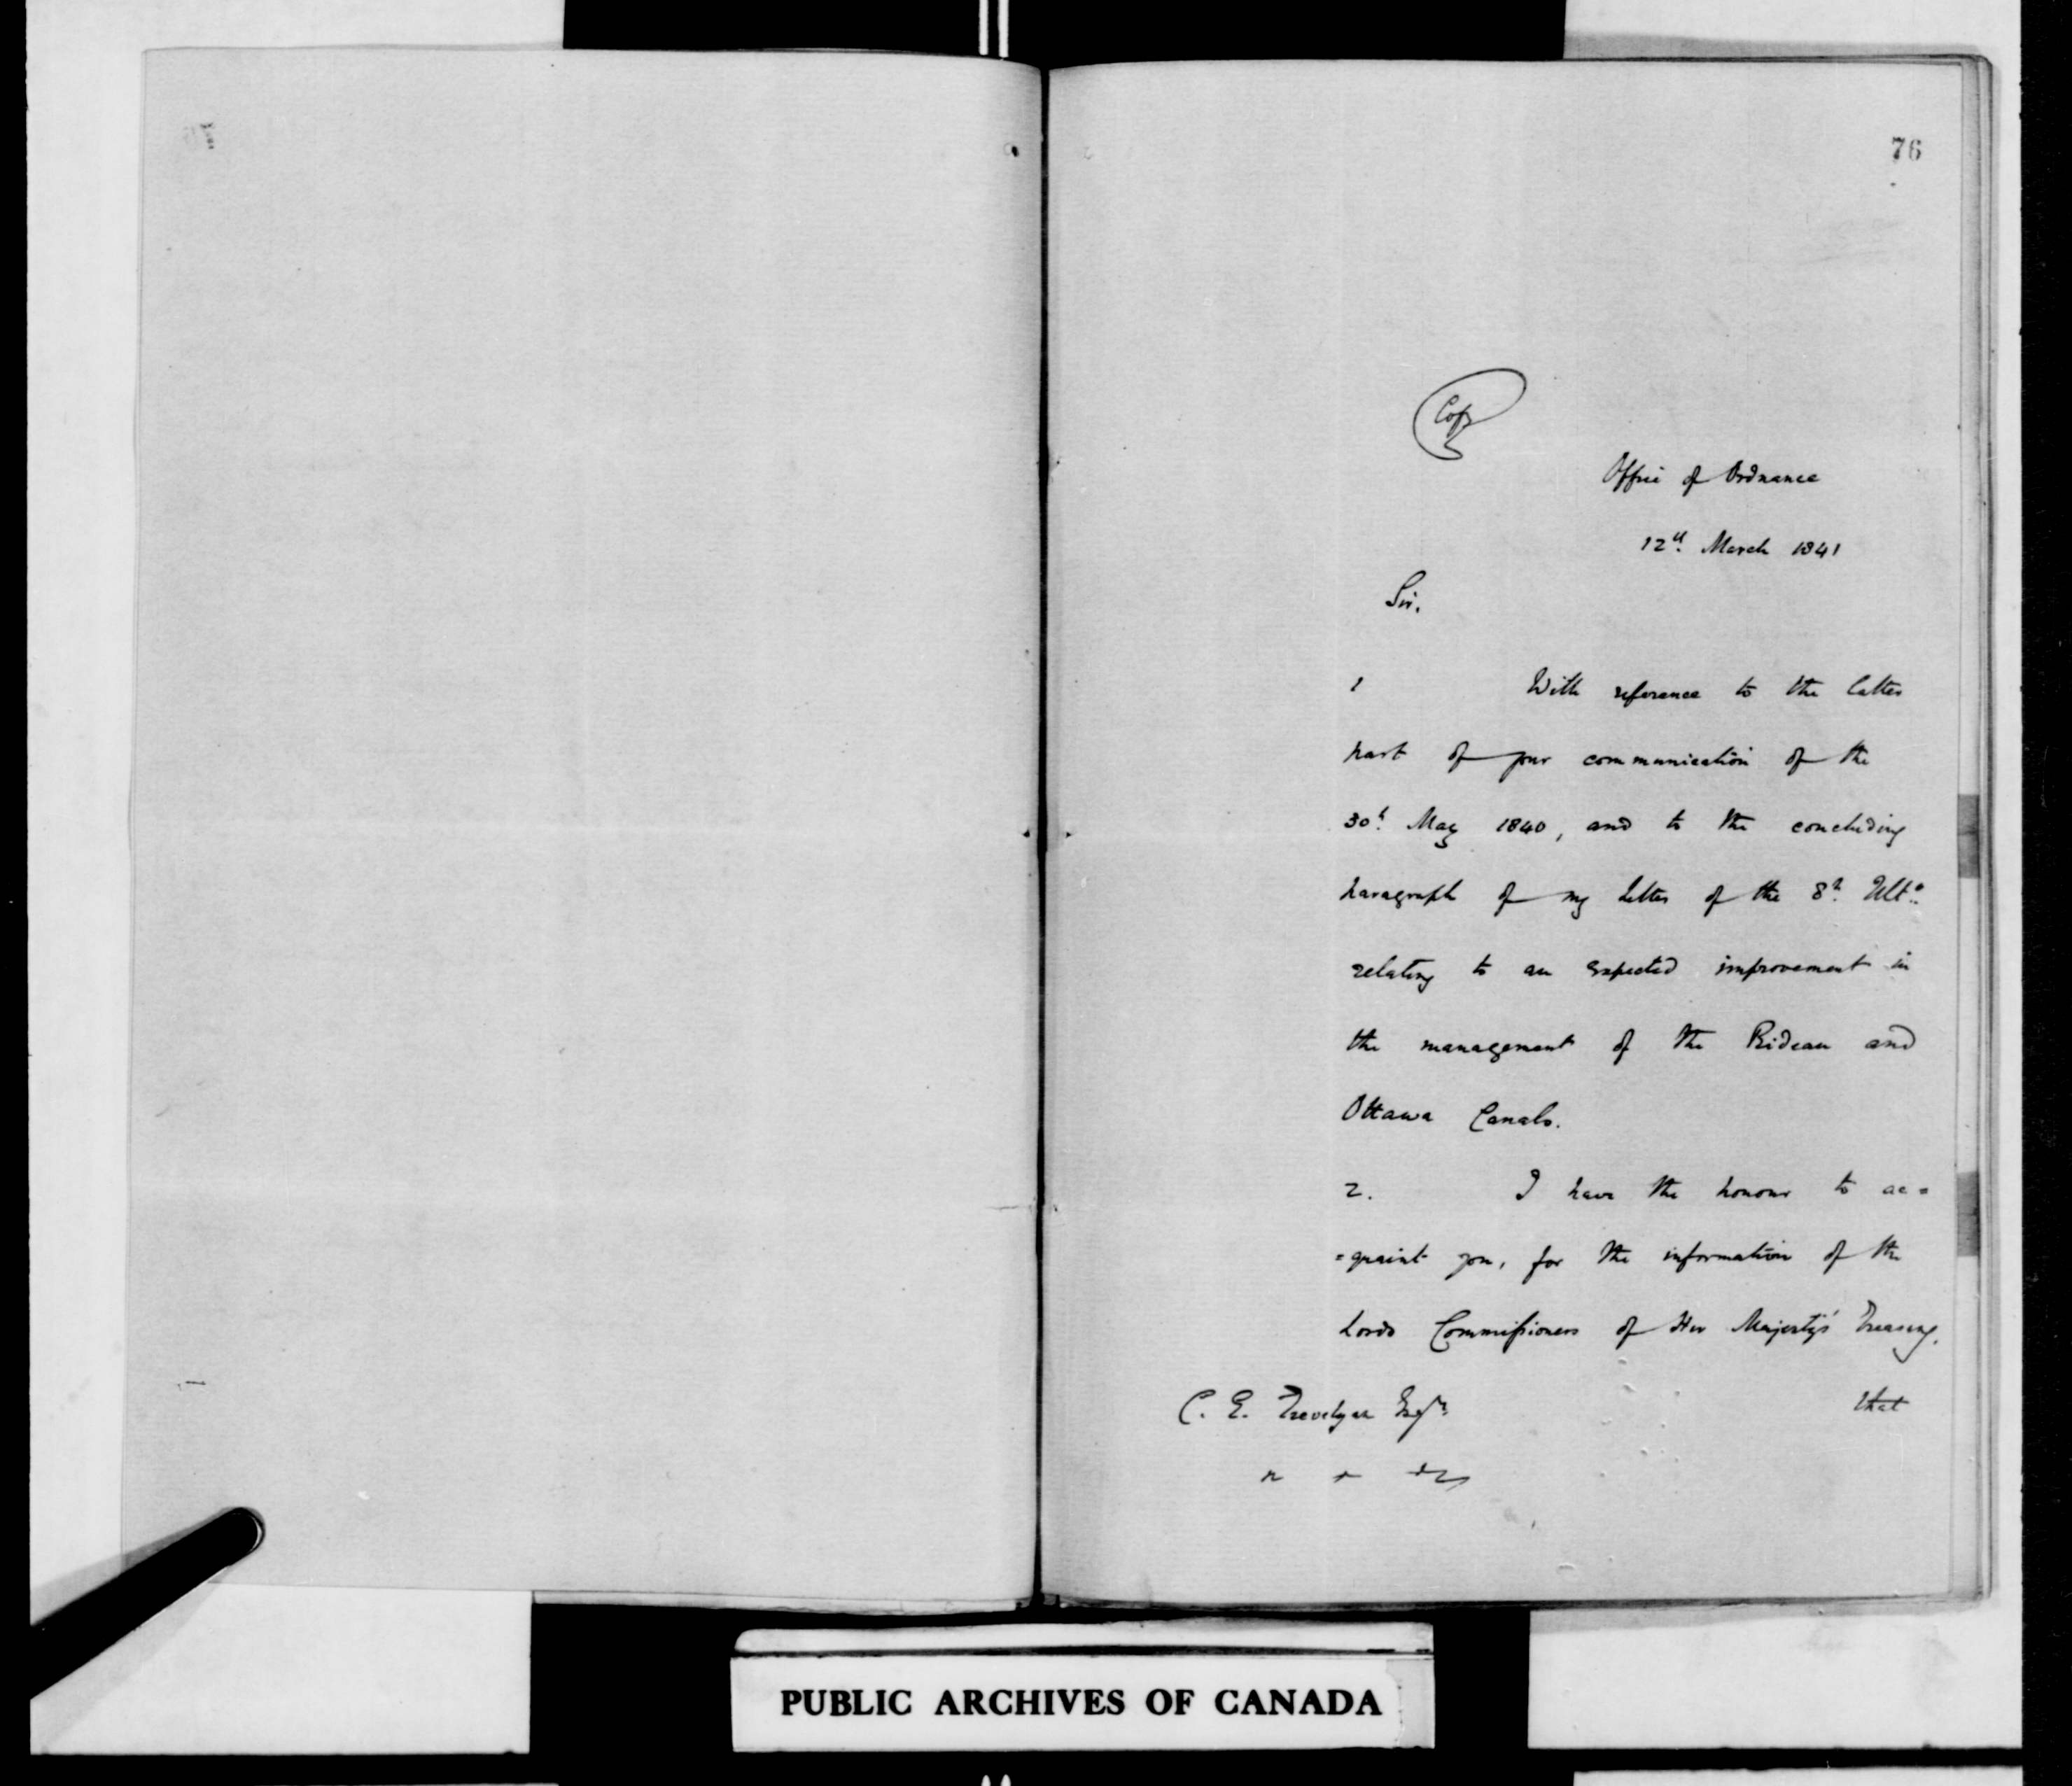 76
Copy
Office of Ordnance
12th March 1841
Sir,
1 With reference to the latter
part of your communication of the
30th May 1840, and to the concluding
paragraph of my Letter of the 8th Ulto
relating to an expected improvement in
the management of the Rideau and
Ottawa Canals.
2. I have the honour to ac=
=quaint you, for the information of the
Lords Commissioners of Her Majesty's Treasury,
that
C. E. Trevelyan Esqr.
PUBLIC ARCHIVES OF CANADA